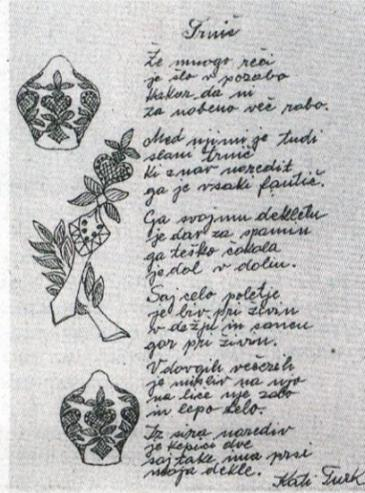 Trnič
Že mnogo reči
je šlo v pozabo
kakor da ni
za nobeno več rabo.
Med njimi je tudi
slani trnič
ki znav naredit
ga je vsaki fantič.
Ga svojmu dekletu
je dav za spomin
ga teško čakala
je dol v dolin.
Saj celo poletje
je biv pri živin
v dežju in soncu
gor pri živin.
V dovgih večerih
je misliv na njo
na lice nje zalo
in lepo telo.
Iz sira narediv
je kepici dve
saj take ima prsi
moja dekle.
Kati Turk